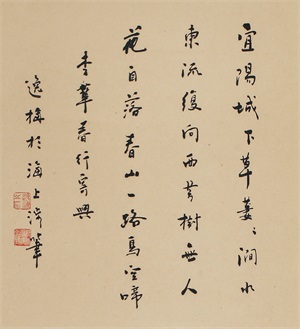 宜陽城下草萋〻澗水
東流復向西芳樹無人
花自落春山一路鳥空啼
李華春行寄興
逸梅於海上筆